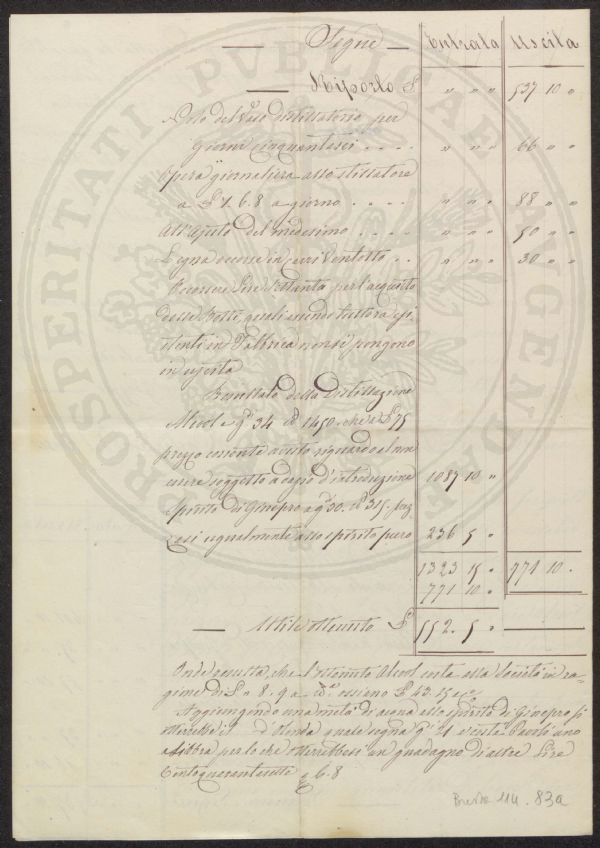 Segue Entrata Uscita
Riporto £ " " " 537 10 "
Nolo del Vaso distillatorio per
Giorni cinquantasei . . . . " " " 66 " "
Opera giornaliera allo stillatore
a £ 1. 6. 8 a giorno . . . . " " " 88 " "
All'Ajuto del medesimo . . . . " " " 50 " "
Legna occorsa in carri Ventotto . . " " " 30 " "
Occorsere Lire Settanta per l'acquisto
delle Botti, quali essendo tuttora esi-
stenti in Fabbrica non si pongono
in uscita
Resultato della Distillazione
Alcool a gi 34 lb 1450. che a £ 75
prezzo corrente avuto riguardo al
essere soggetto a dazio d'introduzione 1087 10 "
Spirito di Ginepro a gi 30. lb 315. prez-
zato egualmente allo spirito puro 236 5 "
1323 15 " 771 10 .
771 10 "
Utile ottenuto £ 552. 5 "
Onde resulta, che l'ottenuto Alcool costa alla Società in ra-
gione di £ 8. 9 ossieno £ 43. 15
Aggiungendo una metà di acqua allo spirito di Ginepro si
otterrebbe il d'Olanda quale segna gi 21 e costa Paoli uno
a Libbra per lo che otterrebbesi un guadagno di altre Lire
Centoquarantasette e 6. 8
Busta 114. 83a
PROSPERITATI PUBLICAE AUGENDAE